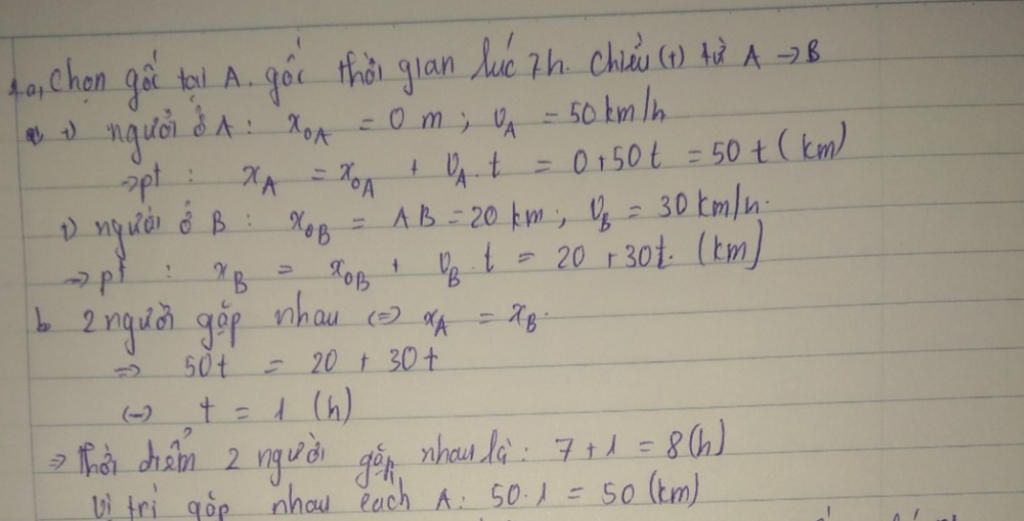 1a, Chọn gốc tại A. gốc thời gian lúc 7h. Chiều (+) từ A → B
+) người ở A : x₀A = 0 m ; v_A = 50 km/h
⇒pt : x_A = x₀A + v_A. t = 0+50t = 50t (km)
+) người ở B : x₀B = AB = 20 km ; v_B = 30 km/h.
⇒ pt : x_B = x₀B + v_B. t = 20 + 30t. (km)
b 2 người gặp nhau ⇔ x_A = x_B.
⇒ 50t = 20 + 30t
⇔ t = 1 (h)
⇒ Thời điểm 2 người gặp nhau là: 7+1 = 8(h)
Vị trí gặp nhau cách A: 50.1 = 50 (km)